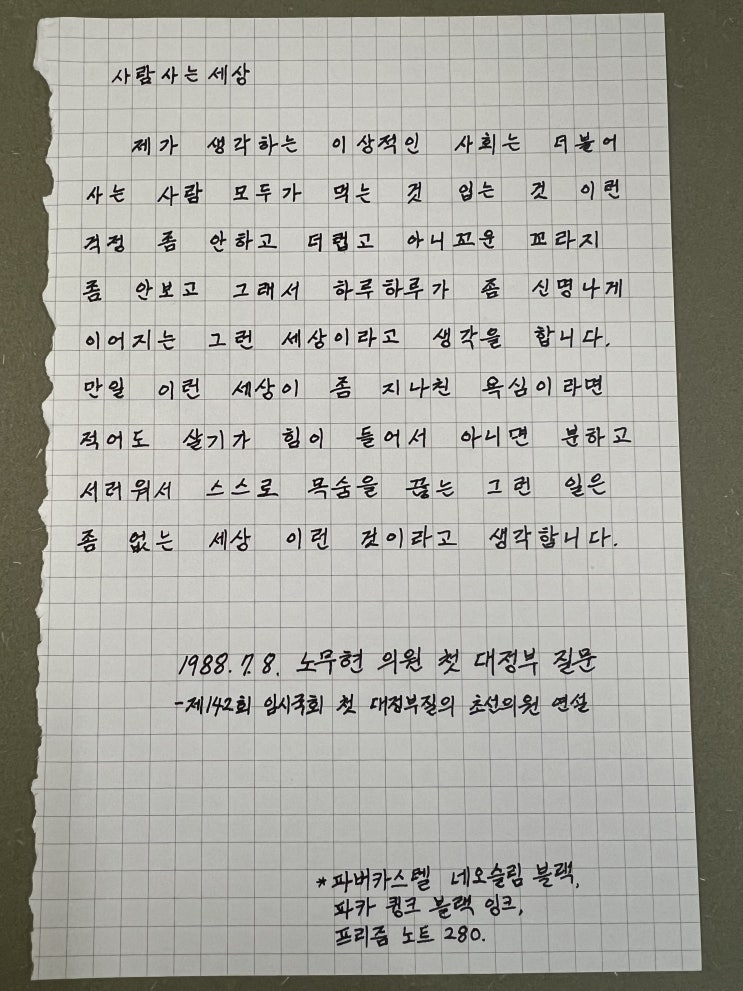 사람사는세상
제가 생각하는 이상적인 사회는 더불어
사는 사람 모두가 먹는 것 입는 것 이런
걱정 좀 안하고 더럽고 아니꼬운 꼬라지
좀 안보고 그래서 하루하루가 좀 신명나게
이어지는 그런 세상이라고 생각을 합니다.
만일 이런 세상이 좀 지나친 욕심이라면
적어도 살기가 힘이 들어서 아니면 분하고
서러워서 스스로 목숨을 끊는 그런 일은
좀 없는 세상 이런 것이라고 생각합니다.
1988.7.8. 노무현 의원 첫 대정부 질문
-제142회 임시국회 첫 대정부질의 초선의원 연설
*파버카스텔 네오슬림 블랙,
파카 큉크 블랙 잉크,
프리즘 노트 280.